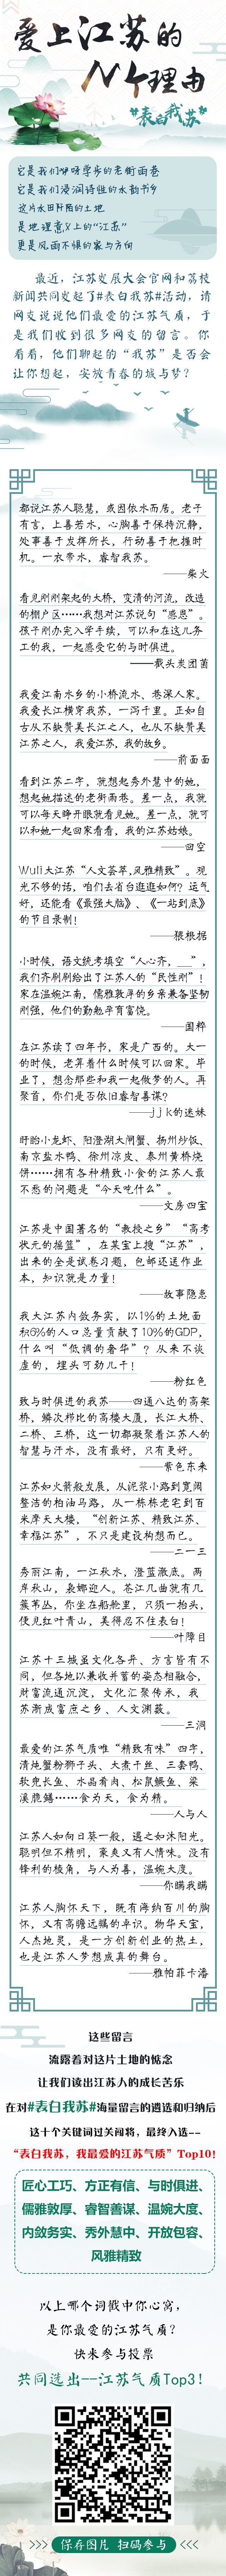 爱上江苏的
N个理由
“表白我苏”
它是我们咿呀学步的老街雨巷
它是我们浸润诗性的水韵书乡
这片水田阡陌的土地
是地理意义上的“江苏”
更是风雨不惧的家与方向
最近，江苏发展大会官网和荔枝
新闻共同发起了#表白我苏#活动，请
网友说说他们最爱的江苏气质，于
是我们收到很多网友的留言。你
看看，他们聊起的“我苏”是否会
让你想起，安放青春的城与梦？
都说江苏人聪慧，或因依水而居。老子
有言，上善若水，心胸善于保持沉静，
处事善于发挥所长，行动善于把握时
机。一衣带水，睿智我苏。
——柴火
看见刚刚架起的大桥，变清的河流，改造
的棚户区……我想对江苏说句“感恩”。
孩子刚办完入学手续，可以和在这儿务
工的我，一起感受它的与时俱进。
——截头炭团菌
我爱江南水乡的小桥流水、巷深人家。
我爱长江横穿我苏，一泻千里。正如自
古从不缺赞美长江之人，也从不缺赞美
江苏之人，我爱江苏，我的故乡。
——前面面
看到江苏二字，就想起秀外慧中的她，
想起她描述的老街雨巷。差一点，我就
可以每天睁开眼就看见她。差一点，就可
以和她一起回家看看，我的江苏姑娘。
——回空
Wuli大江苏“人文荟萃,风雅精致”。观
光不够的话，咱们去省台逛逛如何？运气
好，还能看《最强大脑》、《一站到底》
的节目录制！
——狠根据
小时候，语文统考填空“人心齐，___”，
我们齐刷刷给出了江苏人的“民性刚”！
家在温婉江南，儒雅敦厚的乡亲兼备坚韧
刚强，他们的勤勉孕育富饶。
——国粹
在江苏读了四年书，家是广西的。大一
的时候，老算着什么时候可以回家。毕
业了，想念那些和我一起做梦的人。再
聚首，你们是否依旧睿智善谋？
——jjk的迷妹
盱眙小龙虾、阳澄湖大闸蟹、扬州炒饭、
南京盐水鸭、徐州凉皮、泰州黄桥烧
饼……拥有各种精致小食的江苏人最
不愁的问题是“今天吃什么”。
——文房四宝
江苏是中国著名的“教授之乡”“高考
状元的摇篮”，在某宝上搜“江苏”，
出来的全是试卷习题，包邮还送作业
本，知识就是力量！
——故事隐患
我大江苏内敛务实，以1%的土地面
积6%的人口总量贡献了10%的GDP，
什么叫“低调的奢华”？从来不谈
虚的，埋头可劲儿干！
——粉红色
致与时俱进的我苏——四通八达的高架
桥，鳞次栉比的高楼大厦，长江大桥、
二桥、三桥，这一切都凝聚着江苏人的
智慧与汗水，没有最好，只有更好。
——紫色东来
江苏如火箭般发展，从泥浆小路到宽阔
整洁的柏油马路，从一栋栋老宅到百
米摩天大楼，“创新江苏、精致江苏、
幸福江苏”，不只是建设构想而已。
——二一三
秀丽江南，一江秋水，澄蓝澈底。两
岸秋山，袅娜迎人。苍江几曲就有几
簇苇丛，你坐在船舱里，只须一抬头，
便见红叶青山，美得忍不住表白！
——叶障目
江苏十三城虽文化各异、方言皆有不
同，但各地以兼收并蓄的姿态相融合，
财富流通沉淀，文化汇聚传承，我
苏渐成富庶之乡、人文渊薮。
——三洞
最爱的江苏气质唯“精致有味”四字，
清炖蟹粉狮子头、大煮干丝、三套鸭、
软兜长鱼、水晶肴肉、松鼠鳜鱼、梁
溪脆鳝……食为天，食为精。
——人与人
江苏人如向日葵一般，遇之如沐阳光。
聪明但不精明，豪爽又有人情味。没有
锋利的棱角，与人为善，温婉大度。
——你瞒我瞒
江苏人胸怀天下，既有海纳百川的胸
怀，又有高瞻远瞩的卓识。物华天宝，
人杰地灵，是一方创新创业的热土，
也是江苏人梦想成真的舞台。
——雅帕菲卡潘
这些留言
流露着对这片土地的惦念
让我们读出江苏人的成长苦乐
在对#表白我苏#海量留言的遴选和归纳后
这十个关键词过关闯将，最终入选——
“表白我苏，我最爱的江苏气质”Top10！
匠心工巧、方正有信、与时俱进、
儒雅敦厚、睿智善谋、温婉大度、
内敛务实、秀外慧中、开放包容、
风雅精致
以上哪个词戳中你心窝，
是你最爱的江苏气质？
快来参与投票
共同选出--江苏气质Top3！
>>> 保存图片 扫码参与 <<<